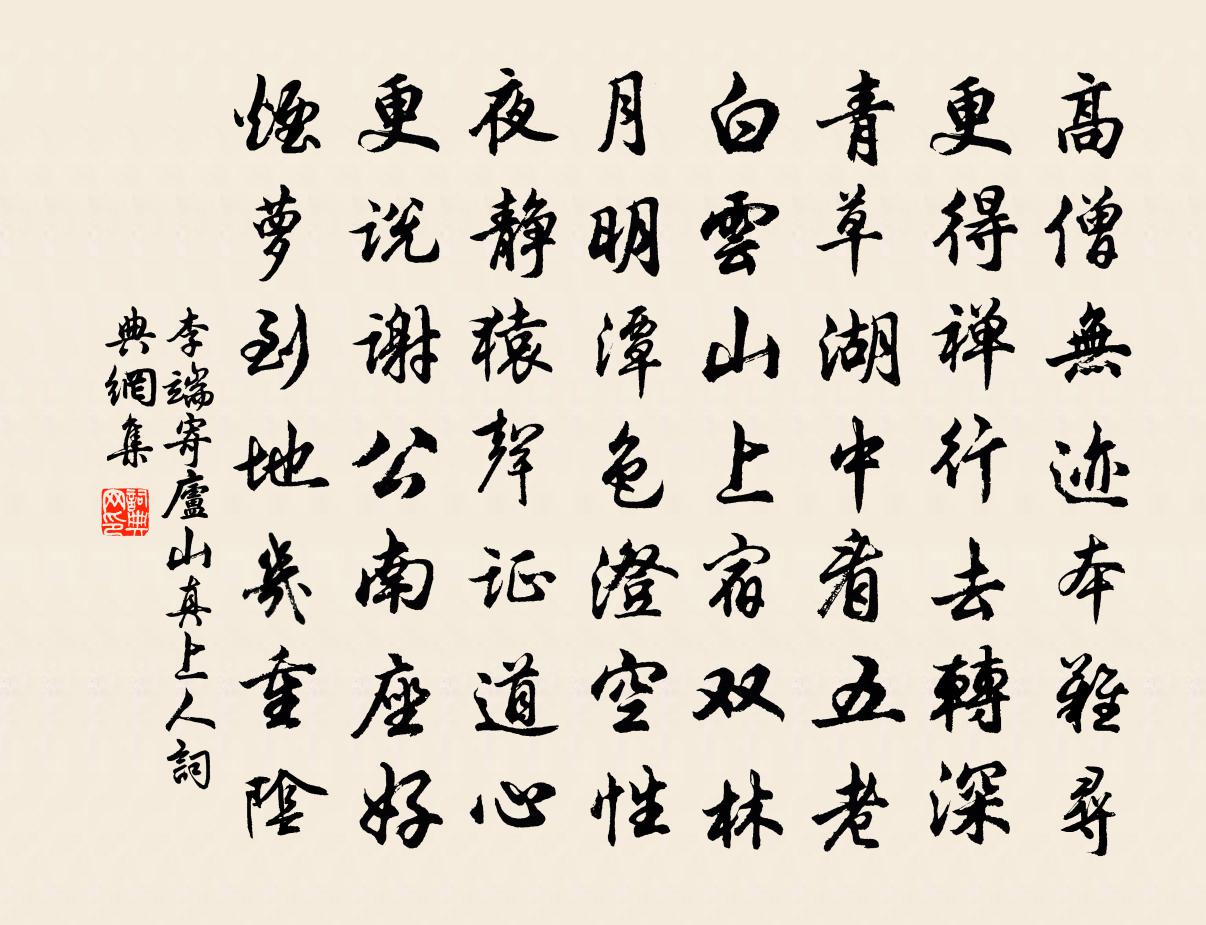 高僧無迹本難尋
更得禅行去轉深
青草湖中看五老
白雲山上宿双林
月明潭色澄空性
夜静猿聲证道心
更说謝公南座好
煙萝到地幾重陰
李端寄廬山真上人詞
典網集
詞典
网印